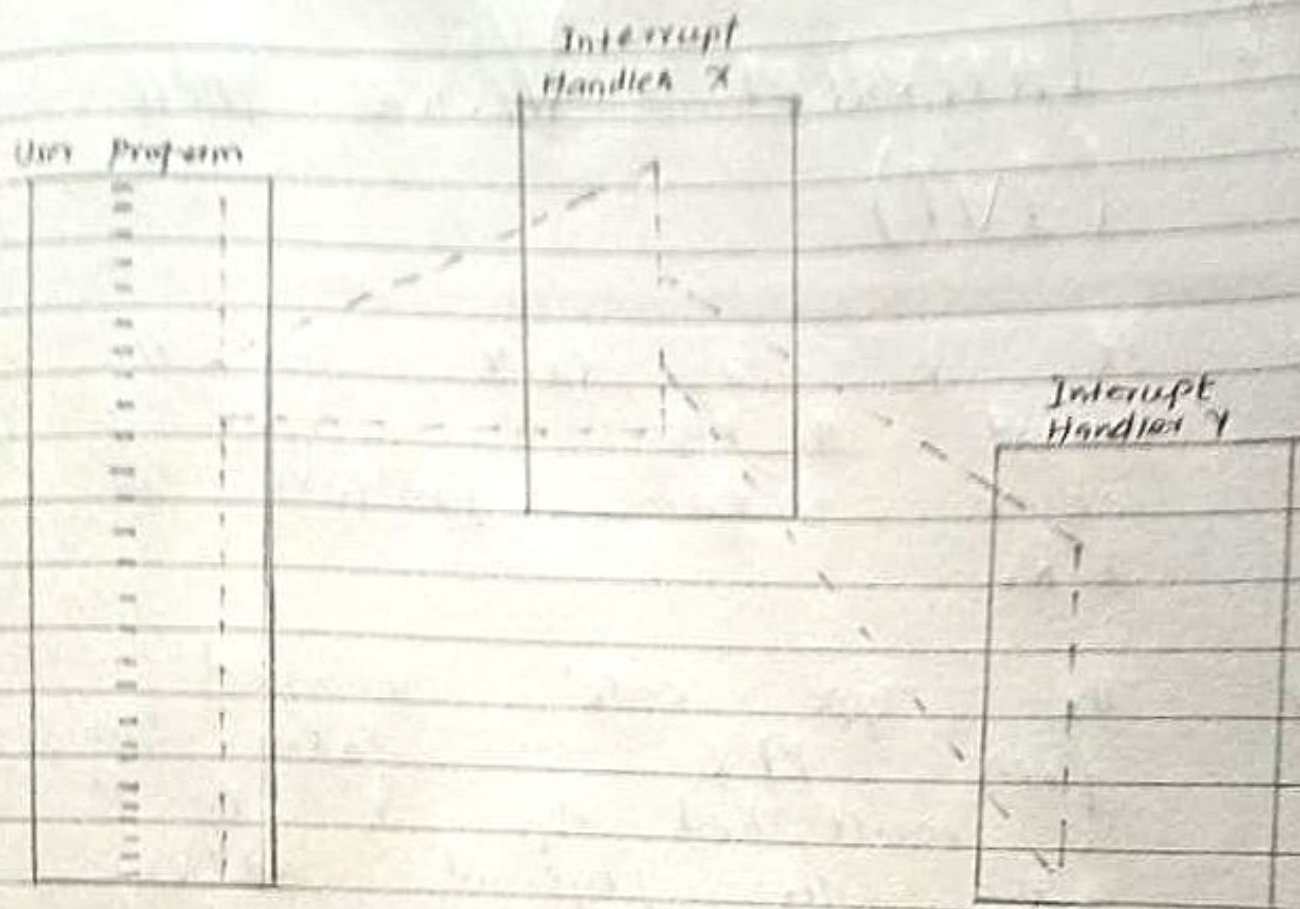 Interrupt
Handler X
User Program
Interupt
Handler Y